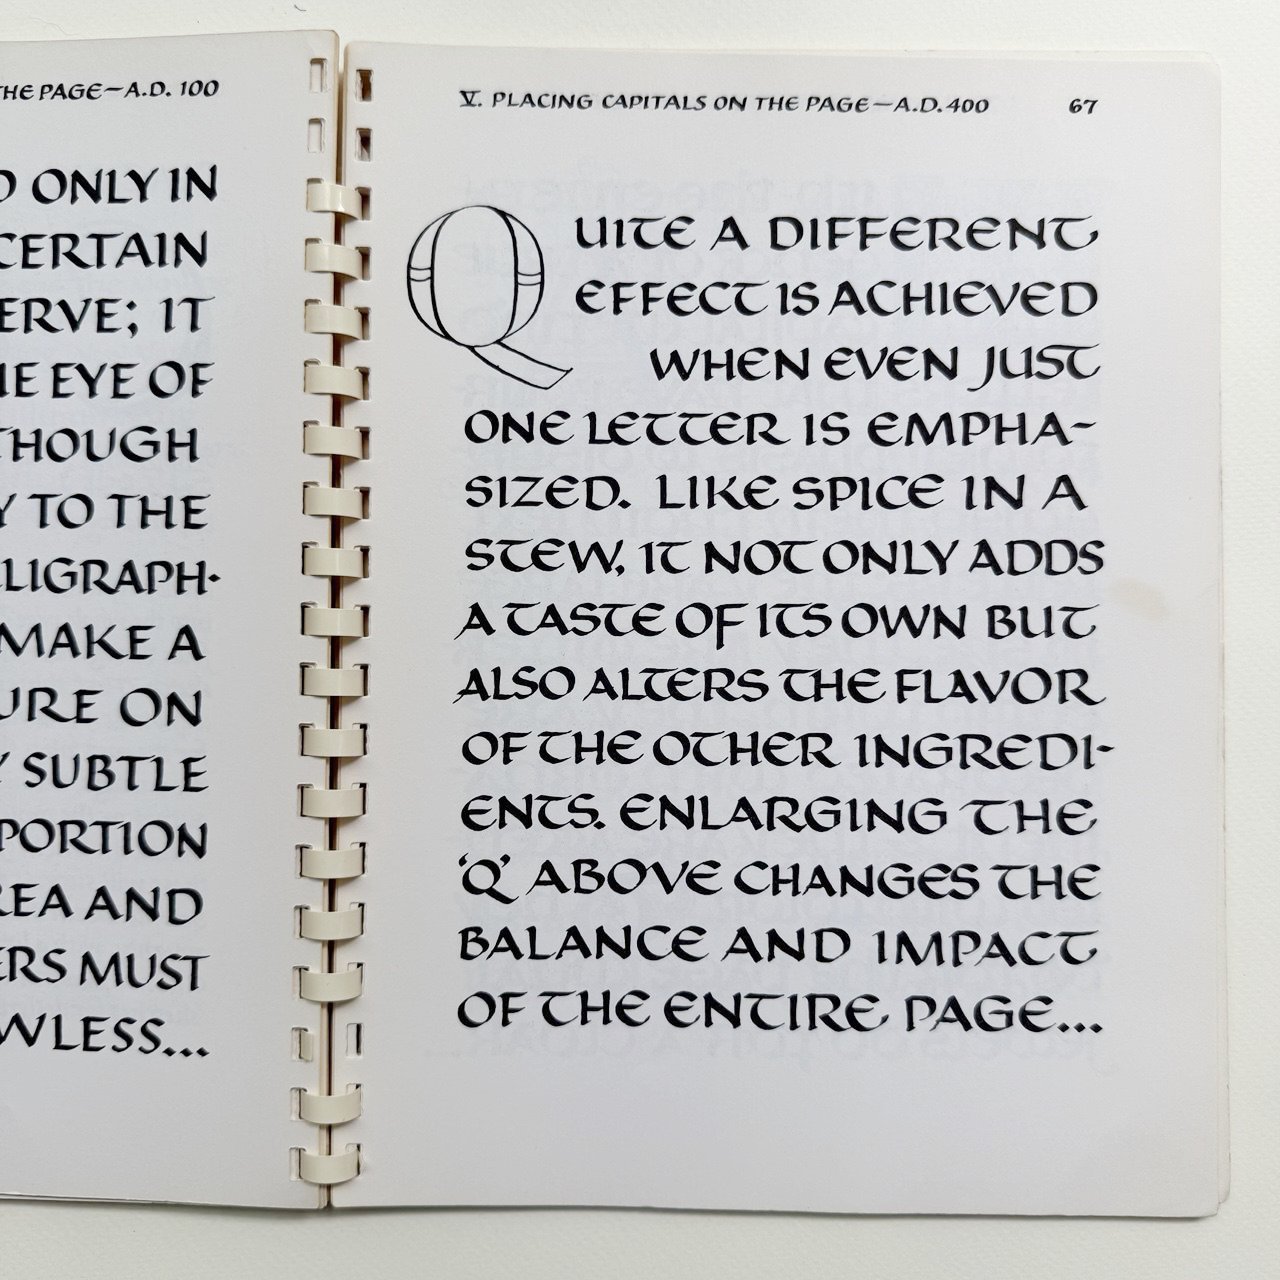 THE PAGE—A.D. 100
ONLY IN
CERTAIN
; IT
EYE OF
THOUGH
TO THE
MAKE A
ON
SUBTLE
AND
MUST
V. PLACING CAPITALS ON THE PAGE—A.D. 400 67
QUITE A DIFFERENT
EFFECT IS ACHIEVED
WHEN EVEN JUST
ONE LETTER IS EMPHA-
SIZED. LIKE SPICE IN A
STEW, IT NOT ONLY ADDS
A TASTE OF ITS OWN BUT
ALSO ALTERS THE FLAVOR
OF THE OTHER INGREDI-
ENTS. ENLARGING THE
‘Q’ ABOVE CHANGES THE
BALANCE AND IMPACT
OF THE ENTIRE PAGE...